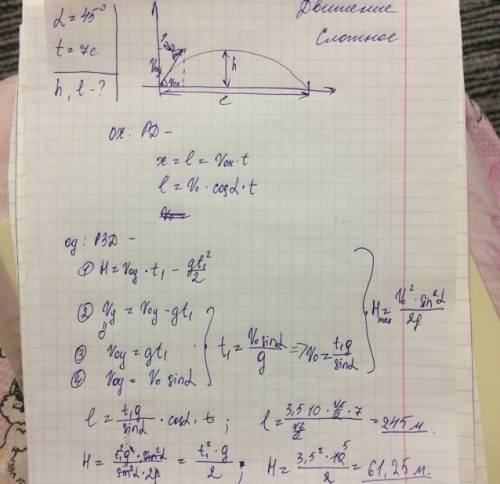 α = 45°
t = 7с
h, l - ?
Движение
Сложное
V₀y
V₀x
h
l
ox: РД –
x = l = V₀x · t
l = V₀ · cosα · t
oy: РЗД –
① H = V₀y · t₁ − gt₁²/2
② Vy = V₀y − gt₁
0
③ V₀y = gt₁
④ V₀y = V₀ sinα
t₁ = V₀ sinα/g ⇒ V₀ = t₁g/sinα
Hmax = V₀² · sin²α/2g
l = t₁g/sinα · cosα · t ; l = 3,5 · 10 · √2/2 · 7/√2/2 = 245 м.
H = t₁²g² · sin²α/sin²α · 2g = t₁² · g/2 ; H = 3,5² · 10 5/2 = 61,25 м.